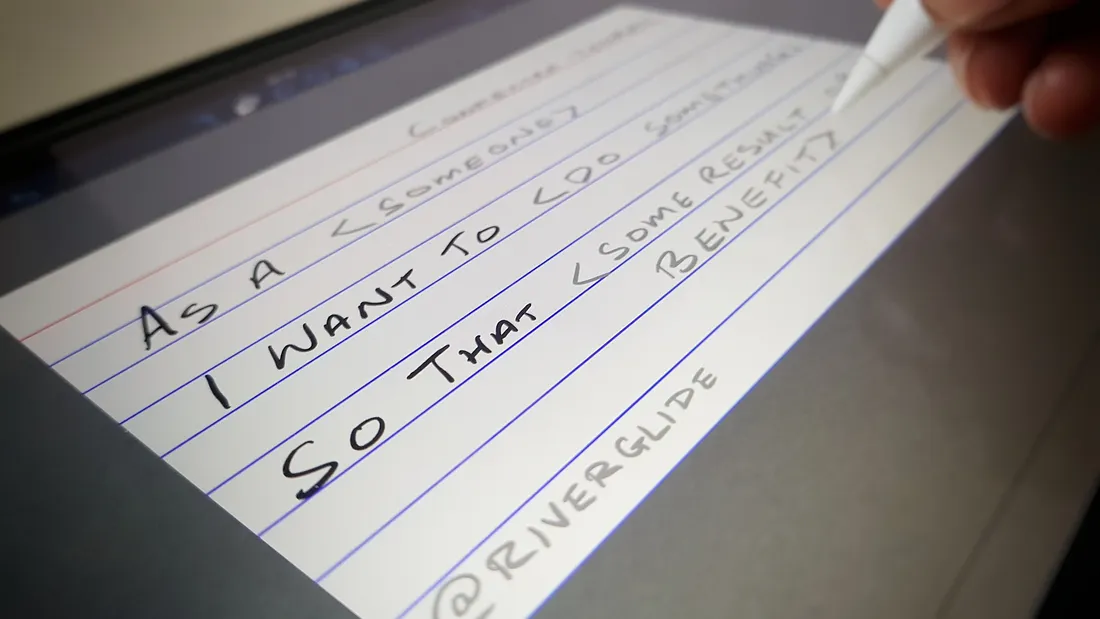 AS A <SOMEONE>
I WANT TO <DO SOMETHING>
SO THAT <SOME RESULT
BENEFIT>
@RIVERGLIDE